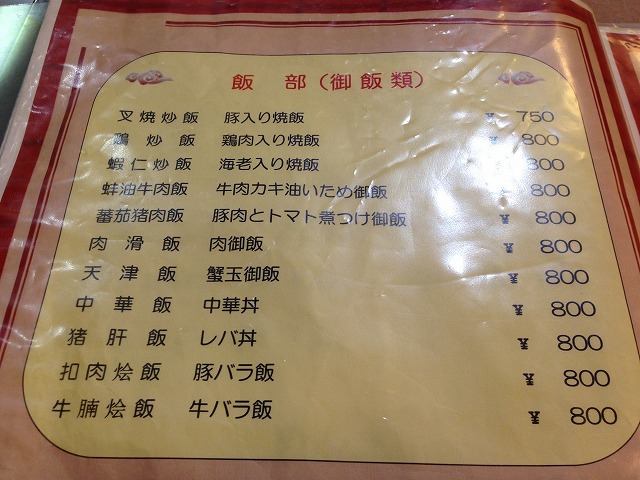 飯 部（御飯類）
叉焼炒飯 豚入り焼飯 ¥ 750
鶏炒飯 鶏肉入り焼飯 ¥ 800
蝦仁炒飯 海老入り焼飯 ¥ 800
蚌油牛肉飯 牛肉カキ油いため御飯 ¥ 800
蕃茄猪肉飯 豚肉とトマト煮つけ御飯 ¥ 800
肉滑飯 肉御飯 ¥ 800
天津飯 蟹玉御飯 ¥ 800
中華飯 中華丼 ¥ 800
猪肝飯 レバ丼 ¥ 800
扣肉烩飯 豚バラ飯 ¥ 800
牛腩烩飯 牛バラ飯 ¥ 800